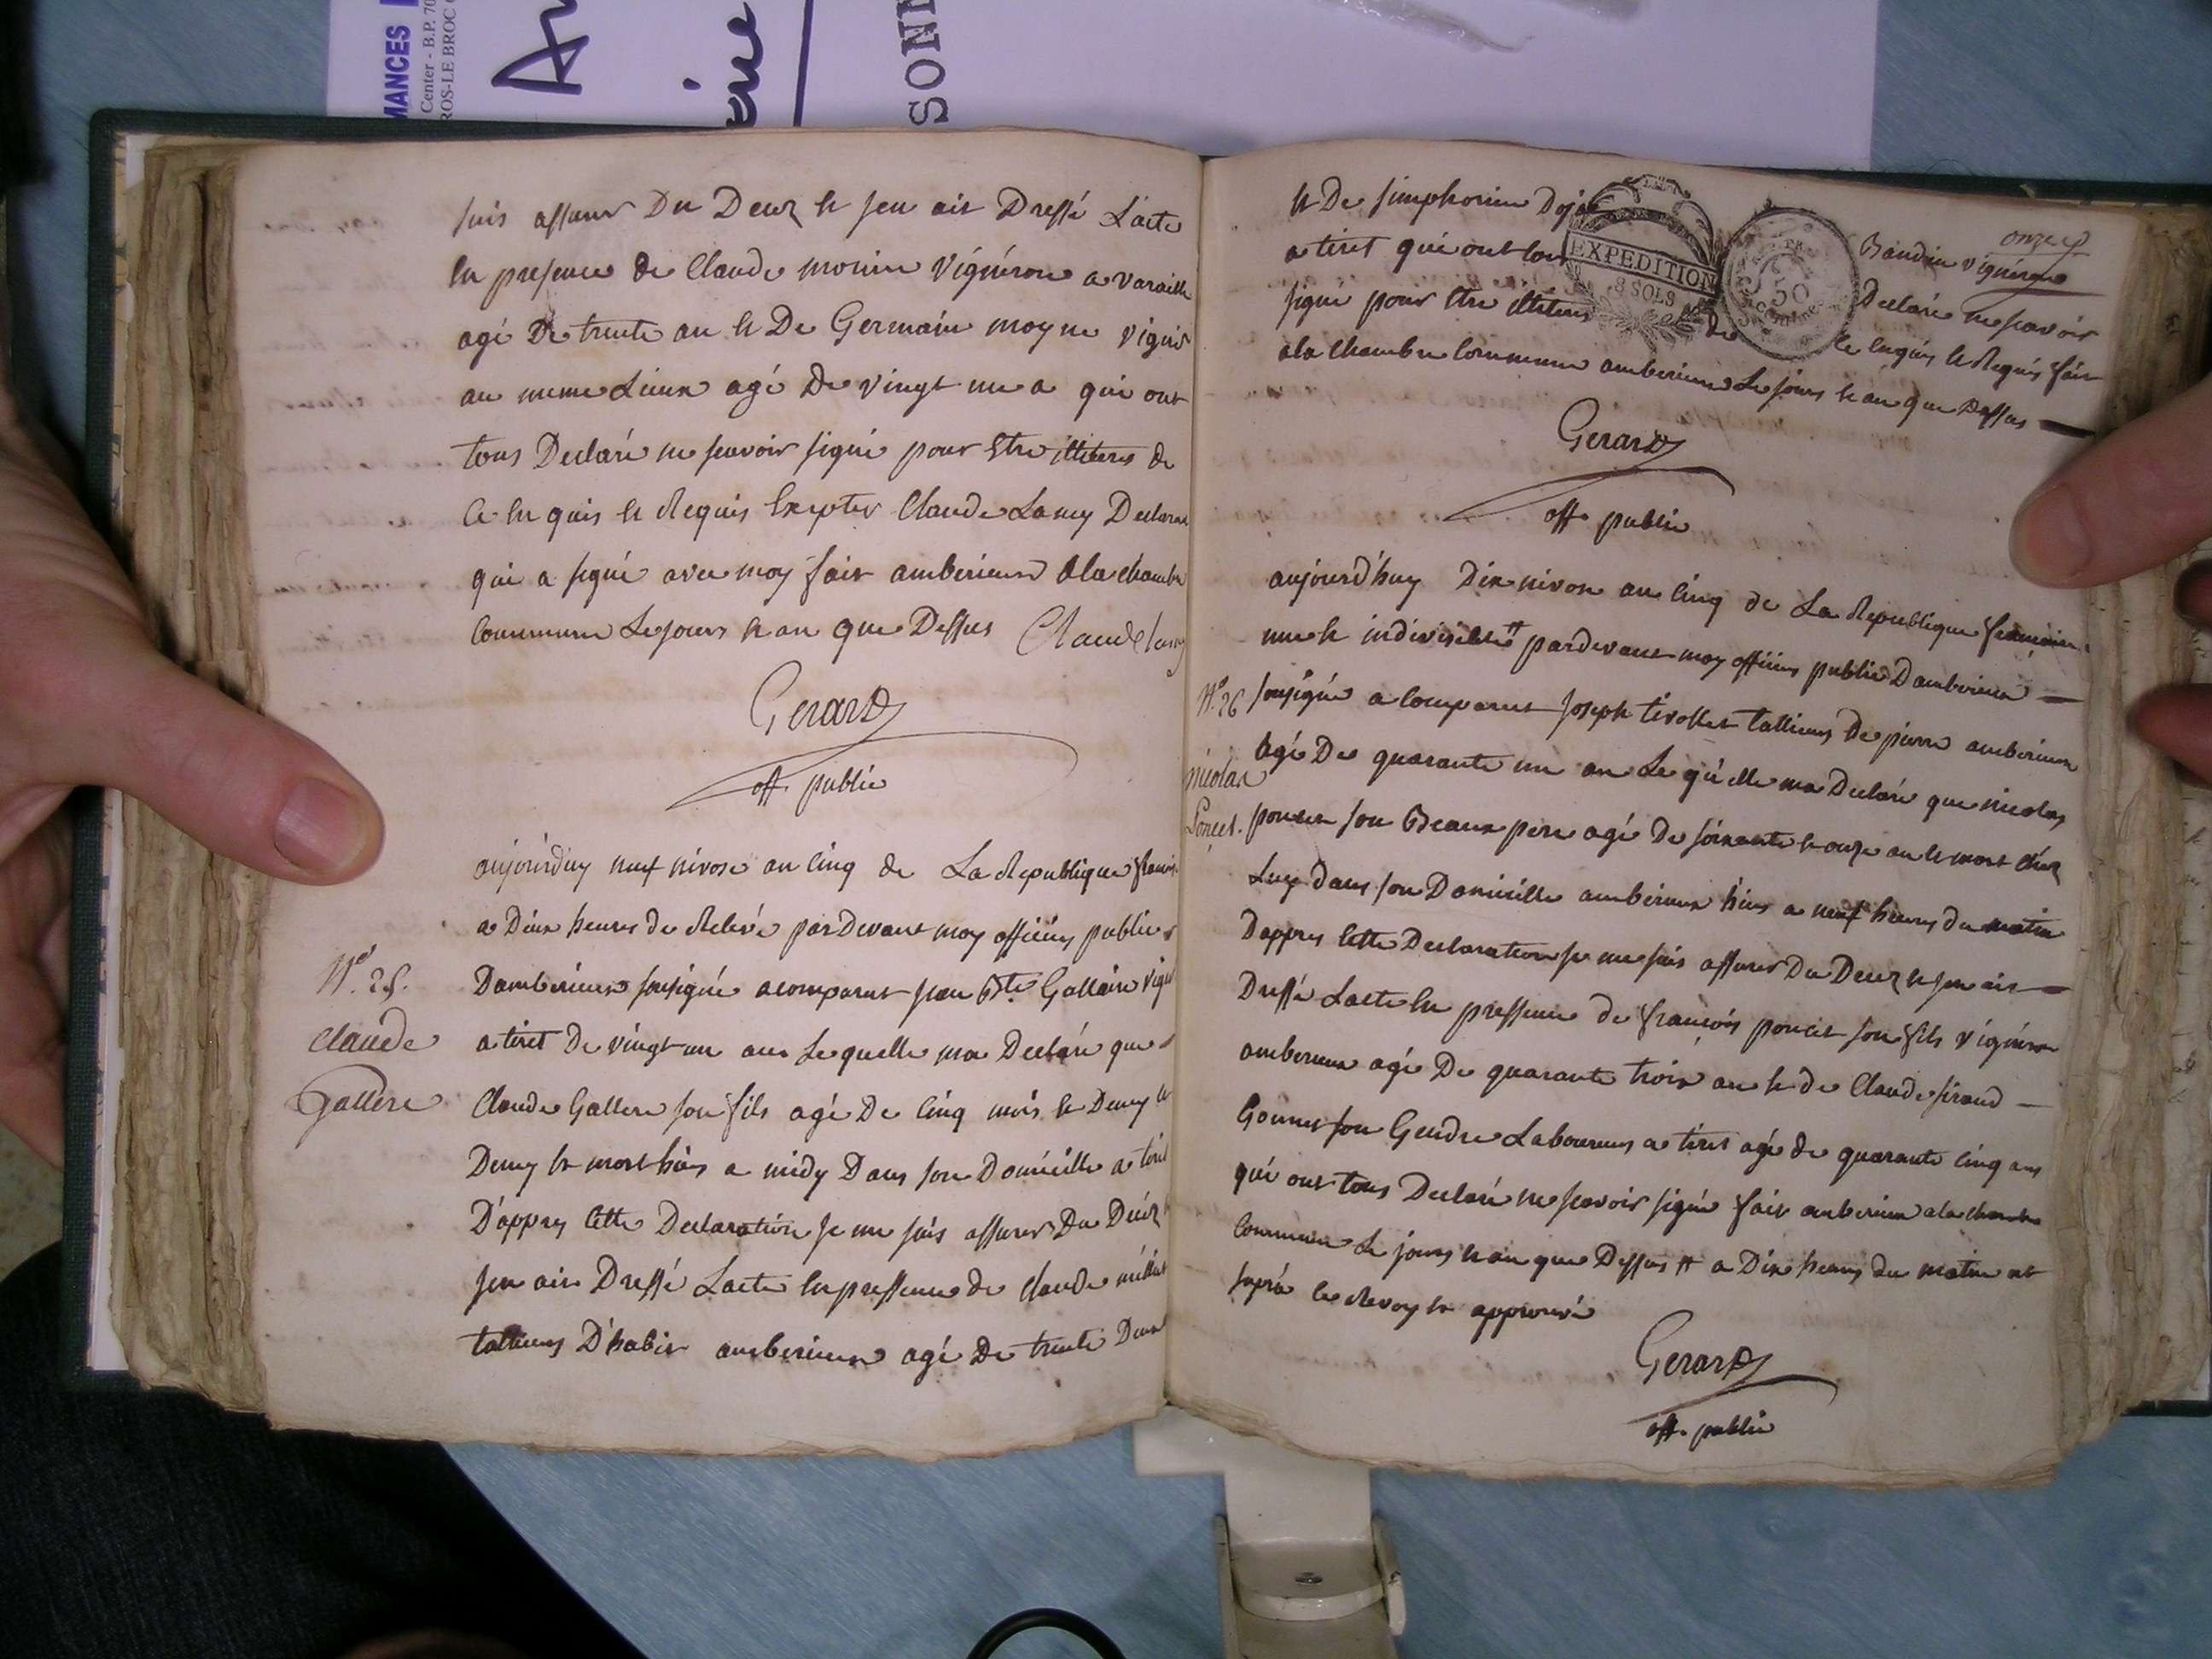 MANCES
Center - B.P. 70
ROS-LE BROC
SONN
suis assurer Du Decez & jen ait Dressé Lacte
En presence de Claude monin vigniron a varaille
agé De trente an & De Germain moyne vignir
au meme Lieux agé De vingt un a qui ont
tous Declaré ne scavoir signé pour Etre illiteres de
Ce En quis & Requis Excepter Claude Lamy Declaran
qui a signé avec moy fait amberieux a la chambre
Commune Le jours & an que Dessus Claude lamy
Gerard
off. public
aujourduy neuf nivose an cinq de La Republique francois
a Deux heures de Relevé pardevant moy officiers public
N.º 25. Damberieux sousigné a comparut jean Bte Gallaire vign
claude a tiret De vingt un ans Le quelle ma Declaré que
Gallere Claude Gallere son fils agé De cinq mois & Demy &
Demy & mort hiers a midy Dans son Domicille a tiret
D'appres Cette Declaration je me suis assurer Du Decez &
jen ait Dressé Lacte En pressence de Claude millet
tallieurs D'habit amberieux agé De trente Deux
onze
& De simphorien Baudin vigniron
a tiret qui ont Declaré ne scavoir
signé pour Etre illiteres de ce Enquis & Requis fait
a la Chambre Commune amberieux Le jours & an que Dessus
EXPEDITION
8 SOLS
50
Gerard
off. public
aujourd'huy Dix nivose an cinq de La Republique francoise
une & indivisible # pardevant moy officiers public Damberieux
N.º 26 sousigné a comparut joseph tivollet tallieurs De pierre amberieux
agé De quarante un an Le qu'elle ma Declaré que nicolas
nicolas
Poncet. poncet son Beaux pere agé De soixante & onze an & mort chez
Luy dans son Domicille amberieux hiers a neuf heures du matin
Dappres Cette Declaration je me suis assurer Du Decez & jen ait
Dressé Lacte En pressence de francois poncet son fils vigniron
amberieux agé De quarante trois an & de Claude siraud
Gonnet son Gendre Laboureurs a tiret agé de quarante cinq ans
qui ont tous Declaré ne scavoir signé fait amberieux a la chambre
Commune Le jours & an que Dessus # a Dix heures du matin
supra le Renvoy & approuvé
Gerard
off. public